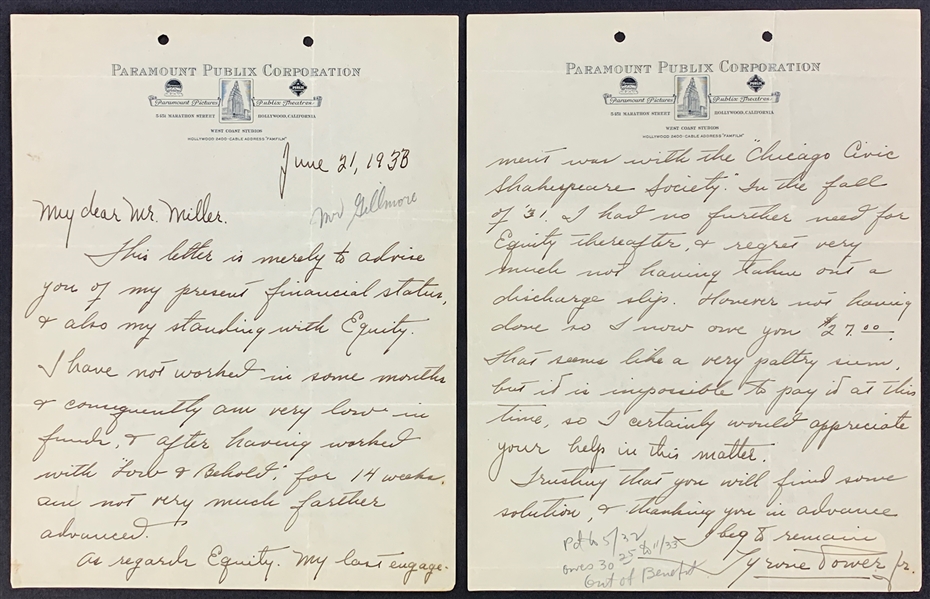 PARAMOUNT PUBLIX CORPORATION
Paramount Pictures
Publix Theatres
5451 MARATHON STREET
HOLLYWOOD, CALIFORNIA
WEST COAST STUDIOS
HOLLYWOOD 2400 - CABLE ADDRESS "FAMFILM"
June 21, 1933
My dear Mr. Miller.
Mr Gillmore
This letter is merely to advise
you of my present financial status,
& also my standing with Equity.
I have not worked in some months
& consequently am very low in
funds, & after having worked
with "Low & Behold", for 14 weeks,
am not very much farther
advanced.
As regards Equity. My last engage-
PARAMOUNT PUBLIX CORPORATION
Paramount Pictures
Publix Theatres
5451 MARATHON STREET
HOLLYWOOD, CALIFORNIA
WEST COAST STUDIOS
HOLLYWOOD 2400 - CABLE ADDRESS "FAMFILM"
ment was with the "Chicago Civic
Shakespeare Society". In the fall
of '31. I had no further need for
Equity thereafter, & regret very
much not having taken out a
discharge slip. However not having
done so I now owe you $27.00.
That seems like a very paltry sum,
but it is impossible to pay it at this
time, so I certainly would appreciate
your help in this matter.
Trusting that you will find some
solution, & thanking you in advance
I beg to remain
Tyrone Power Jr.
Pd to 5/32
owes 30 25 to 11/33
Out of Benefit